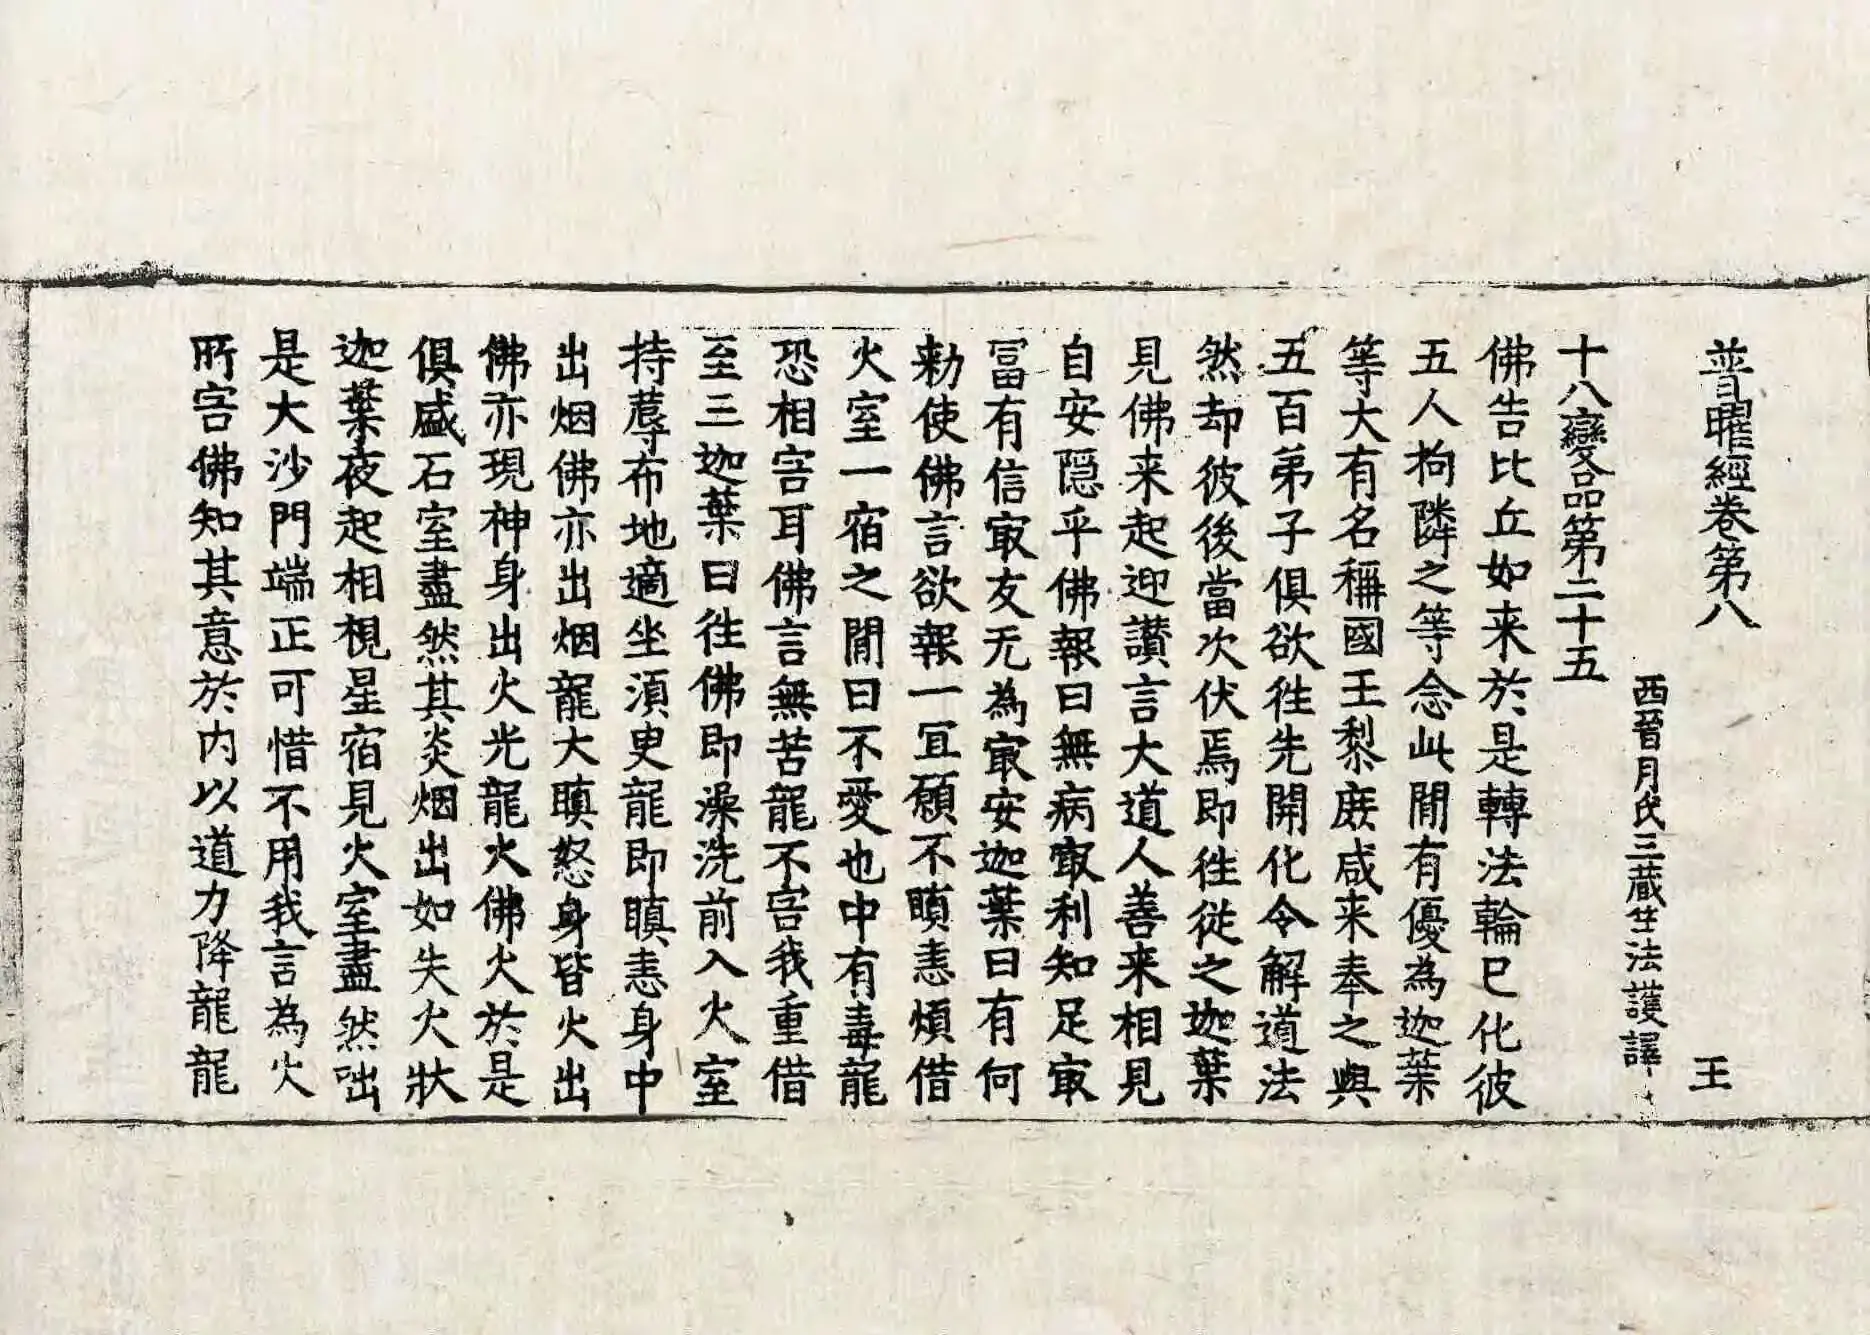 普曜經卷第八 王
西晉月氏三藏竺法護譯
十八變品第二十五
佛告比丘如来於是轉法輪已化彼
五人拘隣之等念此閒有優為迦葉
等大有名稱國王黎庶咸来奉之與
五百弟子俱欲往先開化令解道法
然却彼後當次伏焉即往從之迦葉
見佛来起迎讃言大道人善来相見
自安隱乎佛報曰無病㝡利知足㝡
冨有信㝡友无為㝡安迦葉曰有何
勑使佛言欲報一冝願不瞋恚煩借
火室一宿之閒曰不愛也中有毒龍
恐相害耳佛言無苦龍不害我重借
至三迦葉曰往佛即澡洗前入火室
持蓐布地適坐湏臾龍即瞋恚身中
出烟佛亦出烟龍大瞋怒身皆火出
佛亦現神身出火光龍火佛火於是
俱盛石室盡然其炎烟出如失火狀
迦葉夜起相視星宿見火室盡然咄
是大沙門端正可惜不用我言為火
所害佛知其意於内以道力降龍龍